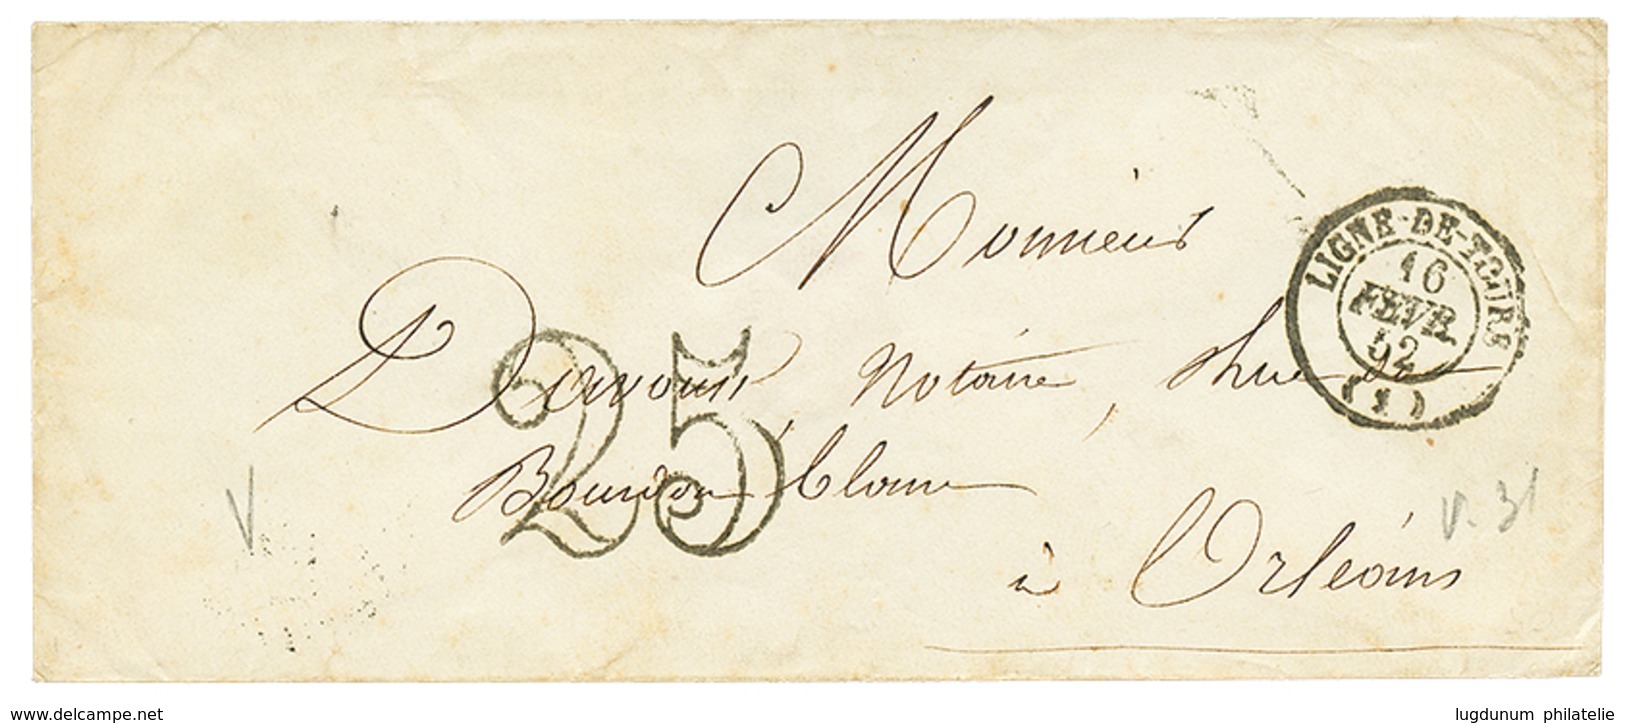 Monsieur
LIGNE-DE-TOURS
16
FEVR.
52
(1)
25
notaire, rue
Bourdon blanc
à Orléans
V
V. 31
www.delcampe.net
lugdunum philatelie